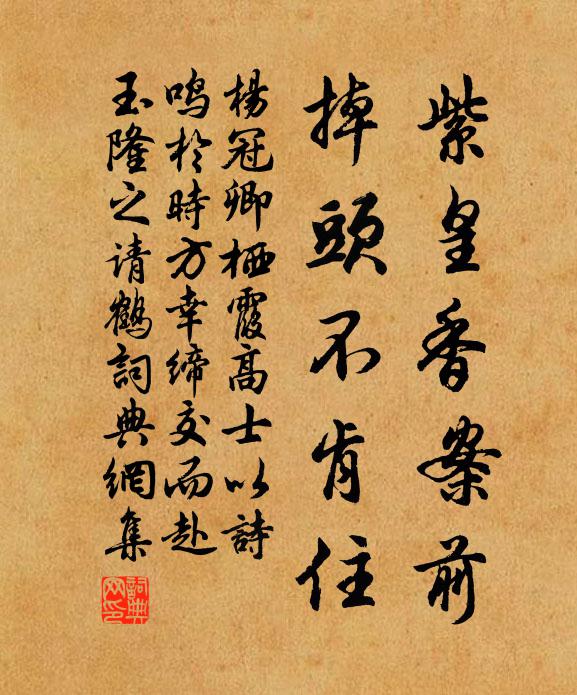 紫皇香案前
掉頭不肯住
楊冠卿栖霞高士以詩
鳴於時方幸締交而赴
玉隆之请鶴詞典網集
詞典網印